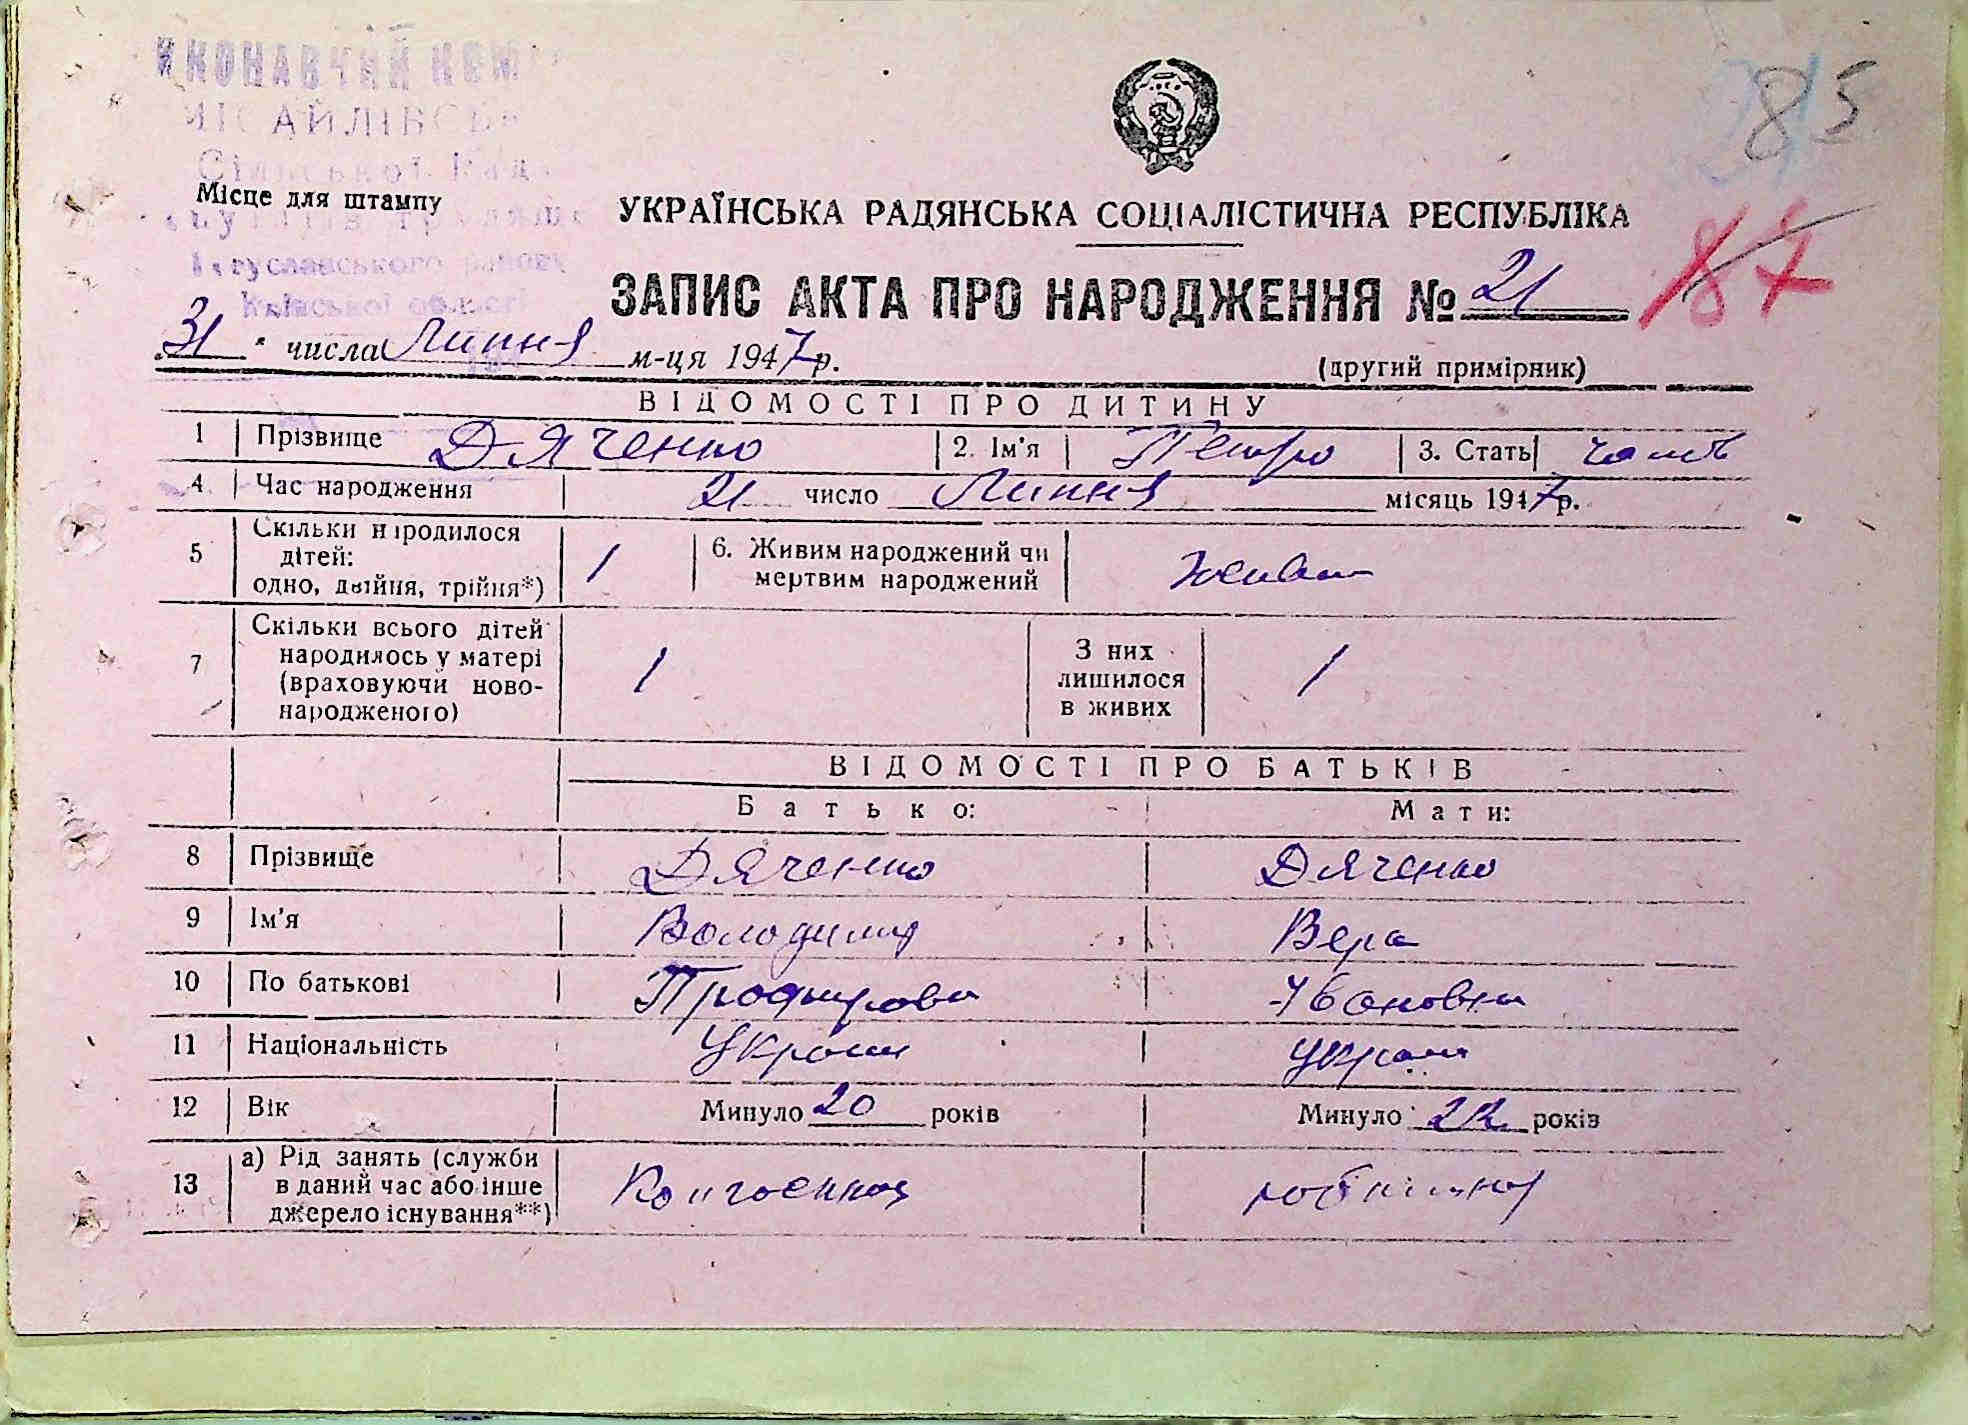 85
Сільської Рад
Місце для штампу
УКРАЇНСЬКА РАДЯНСЬКА СОЦІАЛІСТИЧНА РЕСПУБЛІКА
Богуславського району
87
ЗАПИС АКТА ПРО НАРОДЖЕННЯ № 21
Київської області
31 " числа Липня м-ця 1947 р.
(другий примірник)
ВІДОМОСТІ ПРО ДИТИНУ
1 Прізвище Дяченко 2. Ім'я Петро 3. Стать
4 Час народження 21 число Липня місяць 1947 р.
5 Скільки народилося
дітей:
одно, двійня, трійня*) 1 6. Живим народжений чи
мертвим народжений
7 Скільки всього дітей
народилось у матері
(враховуючи ново-
народженого) 1 З них
лишилося
в живих 1
ВІДОМОСТІ ПРО БАТЬКІВ
Батько: Мати:
8 Прізвище Дяченко Дяченко
9 Ім'я Володимир Вера
10 По батькові Ивановна
11 Національність
12 Вік Минуло 20 років Минуло 22 років
13 а) Рід занять (служби
в даний час або інше
джерело існування**)